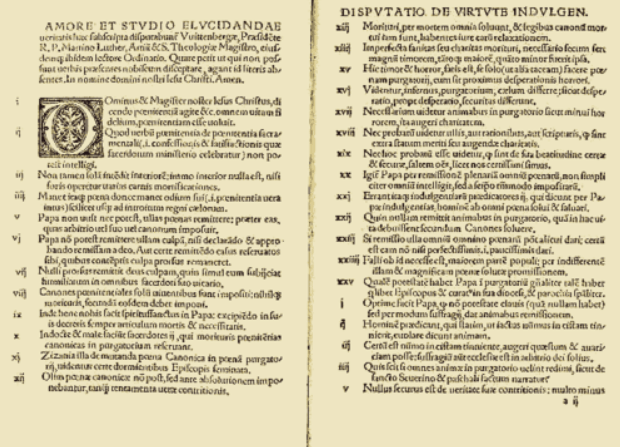 AMORE ET STVDIO ELVCIDANDAE
ueritatis hæc subscripta disputabunt Vuittenbergæ, Præsidēte
R. P. Martino Luther, Artiū & S. Theologiæ Magistro, eius-
demq; ibidem lectore Ordinatio. Quare petit ut qui non pos-
sunt uerbis præsentes nobiscum disceptare, agant id literis ab-
sentes. In nomine domini nostri Iesu Christi. Amen.
i Dominus & Magister noster Iesus Christus, di-
cendo pœnitentiā agite &c. omnem uitam fi
delium, pœnitentiam esse uoluit.
ij Quod uerbū pœnitentia de pœnitentia sacra-
mentali (.i. confessionis & satisfactionis quæ
sacerdotum ministerio celebratur) non po-
test intelligi.
iij Non tamen solā intēdit interiorē: immo interior nulla est, nisi
foris operetur uarias carnis mortificationes.
iiij Manet itaq; pœna donec manet odium sui (.i. pœnitentia uera
intus) scilicet usq; ad introitum regni cælorum.
v Papa non uult nec potest, ullas pœnas remittere: præter eas,
quas arbitrio uel suo uel canonum imposuit.
vj Papa nō potest remittere ullam culpā, nisi declarādo & appro-
bando remissam a deo. Aut certe remittēdo casus reseruatos
sibi, quibus contēptis culpa prorsus remaneret.
vij Nulli prorsus remittit deus culpam, quin simul eum subijciat
humiliatum in omnibus sacerdoti suo uicario.
viij Canones pœnitentiales solū uiuentibus sunt impositi: nihilq;
morituris, secundū eosdem debet imponi.
ix Inde bene nobis facit spiritussanctus in Papa: excipiēdo in su-
is decretis semper articulum mortis & necessitatis.
x Indocte & male faciūt sacerdotes ij, qui morituris pœnitētias
canonicas in purgatorium reseruant.
xj Zizania illa de mutanda pœna Canonica in pœnā purgato-
rij, uidentur certe dormientibus Episcopis seminata.
xij Olim pœnæ canonicæ nō post, sed ante absolutionem impo-
nebantur, tanq̄ tentamenta ueræ contritionis.
DISPVTATIO DE VIRTVTE INDVLGEN.
xiij Morituri, per mortem omnia soluunt, & legibus canonū mor-
tui iam sunt, habentes iure earū relaxationem.
xiiij Imperfecta sanitas seu charitas morituri, necessario secum fert
magnū timorem, tātoq; maiorē, quāto minor fuerit ipsa.
xv Hic timor & horror, satis est, se solo (ut alia taceam) facere pœ-
nam purgatorij, cum sit proximus desperationis horrori.
xvj Videntur, infernus, purgatorium, cælum differre: sicut despe-
ratio, prope desperatio, securitas differunt.
xvij Necessarium uidetur animabus in purgatorio sicut minui hor-
rorem, ita augeri charitatem.
xviij Nec probatū uidetur ullis, aut rationibus, aut scripturis, q̄ sint
extra statum meriti seu augendæ charitatis.
xix Nec hoc probatū esse uidetur, q̄ sint de sua beatitudine certæ
& securæ, saltem oēs, licet nos certissimi simus.
xx Igit̄ Papa per remissionē plenariā omniū pœnarū, non simpli
citer omniū intelligit, sed a seipso tātūmodo impositarū.
xxj Errant itaq; indulgentiarū prædicatores ij, qui dicunt per Pa-
pæ indulgentias, hominē ab omni pœna solui & saluari.
xxij Quin nullam remittit animabus in purgatorio, quā in hac ui-
ta debuissent secundum Canones soluere.
xxiij Si remissio ulla omniū omnino pœnarū pōt alicui dari; certū
est eam nō nisi perfectissimis .i. paucissimis dari.
xxiiij Falli ob id necesse est, maiorem partē populi: per indifferentē
illam & magnificam pœnæ solutæ promissionem.
xxv Qualē potestatē habet Papa ī purgatoriū gn̄aliter talē habet
q̄libet Episcopus & curat̄ in sua diocesi, & parochia sp̄aliter.
i Optime facit Papa, q̄ nō potestate clauis (quā nullam habet)
sed per modum suffragij, dat animabus remissionem.
ij Hominē prædicant, qui statim, ut iactus nūmus in cistam tin-
nierit, euolare dicunt animam.
iij Certū est nūmo in cistam tinniente, augeri quæstum & auari-
ciam posse: suffragiū aūt ecclesiæ est in arbitrio dei solius.
iiij Quis scit si omnes animæ in purgatorio uelint redimi, sicut de
sancto Seuerino & paschali factum narratur.
v Nullus securus est de ueritate suæ contritionis; multo minus
a ij